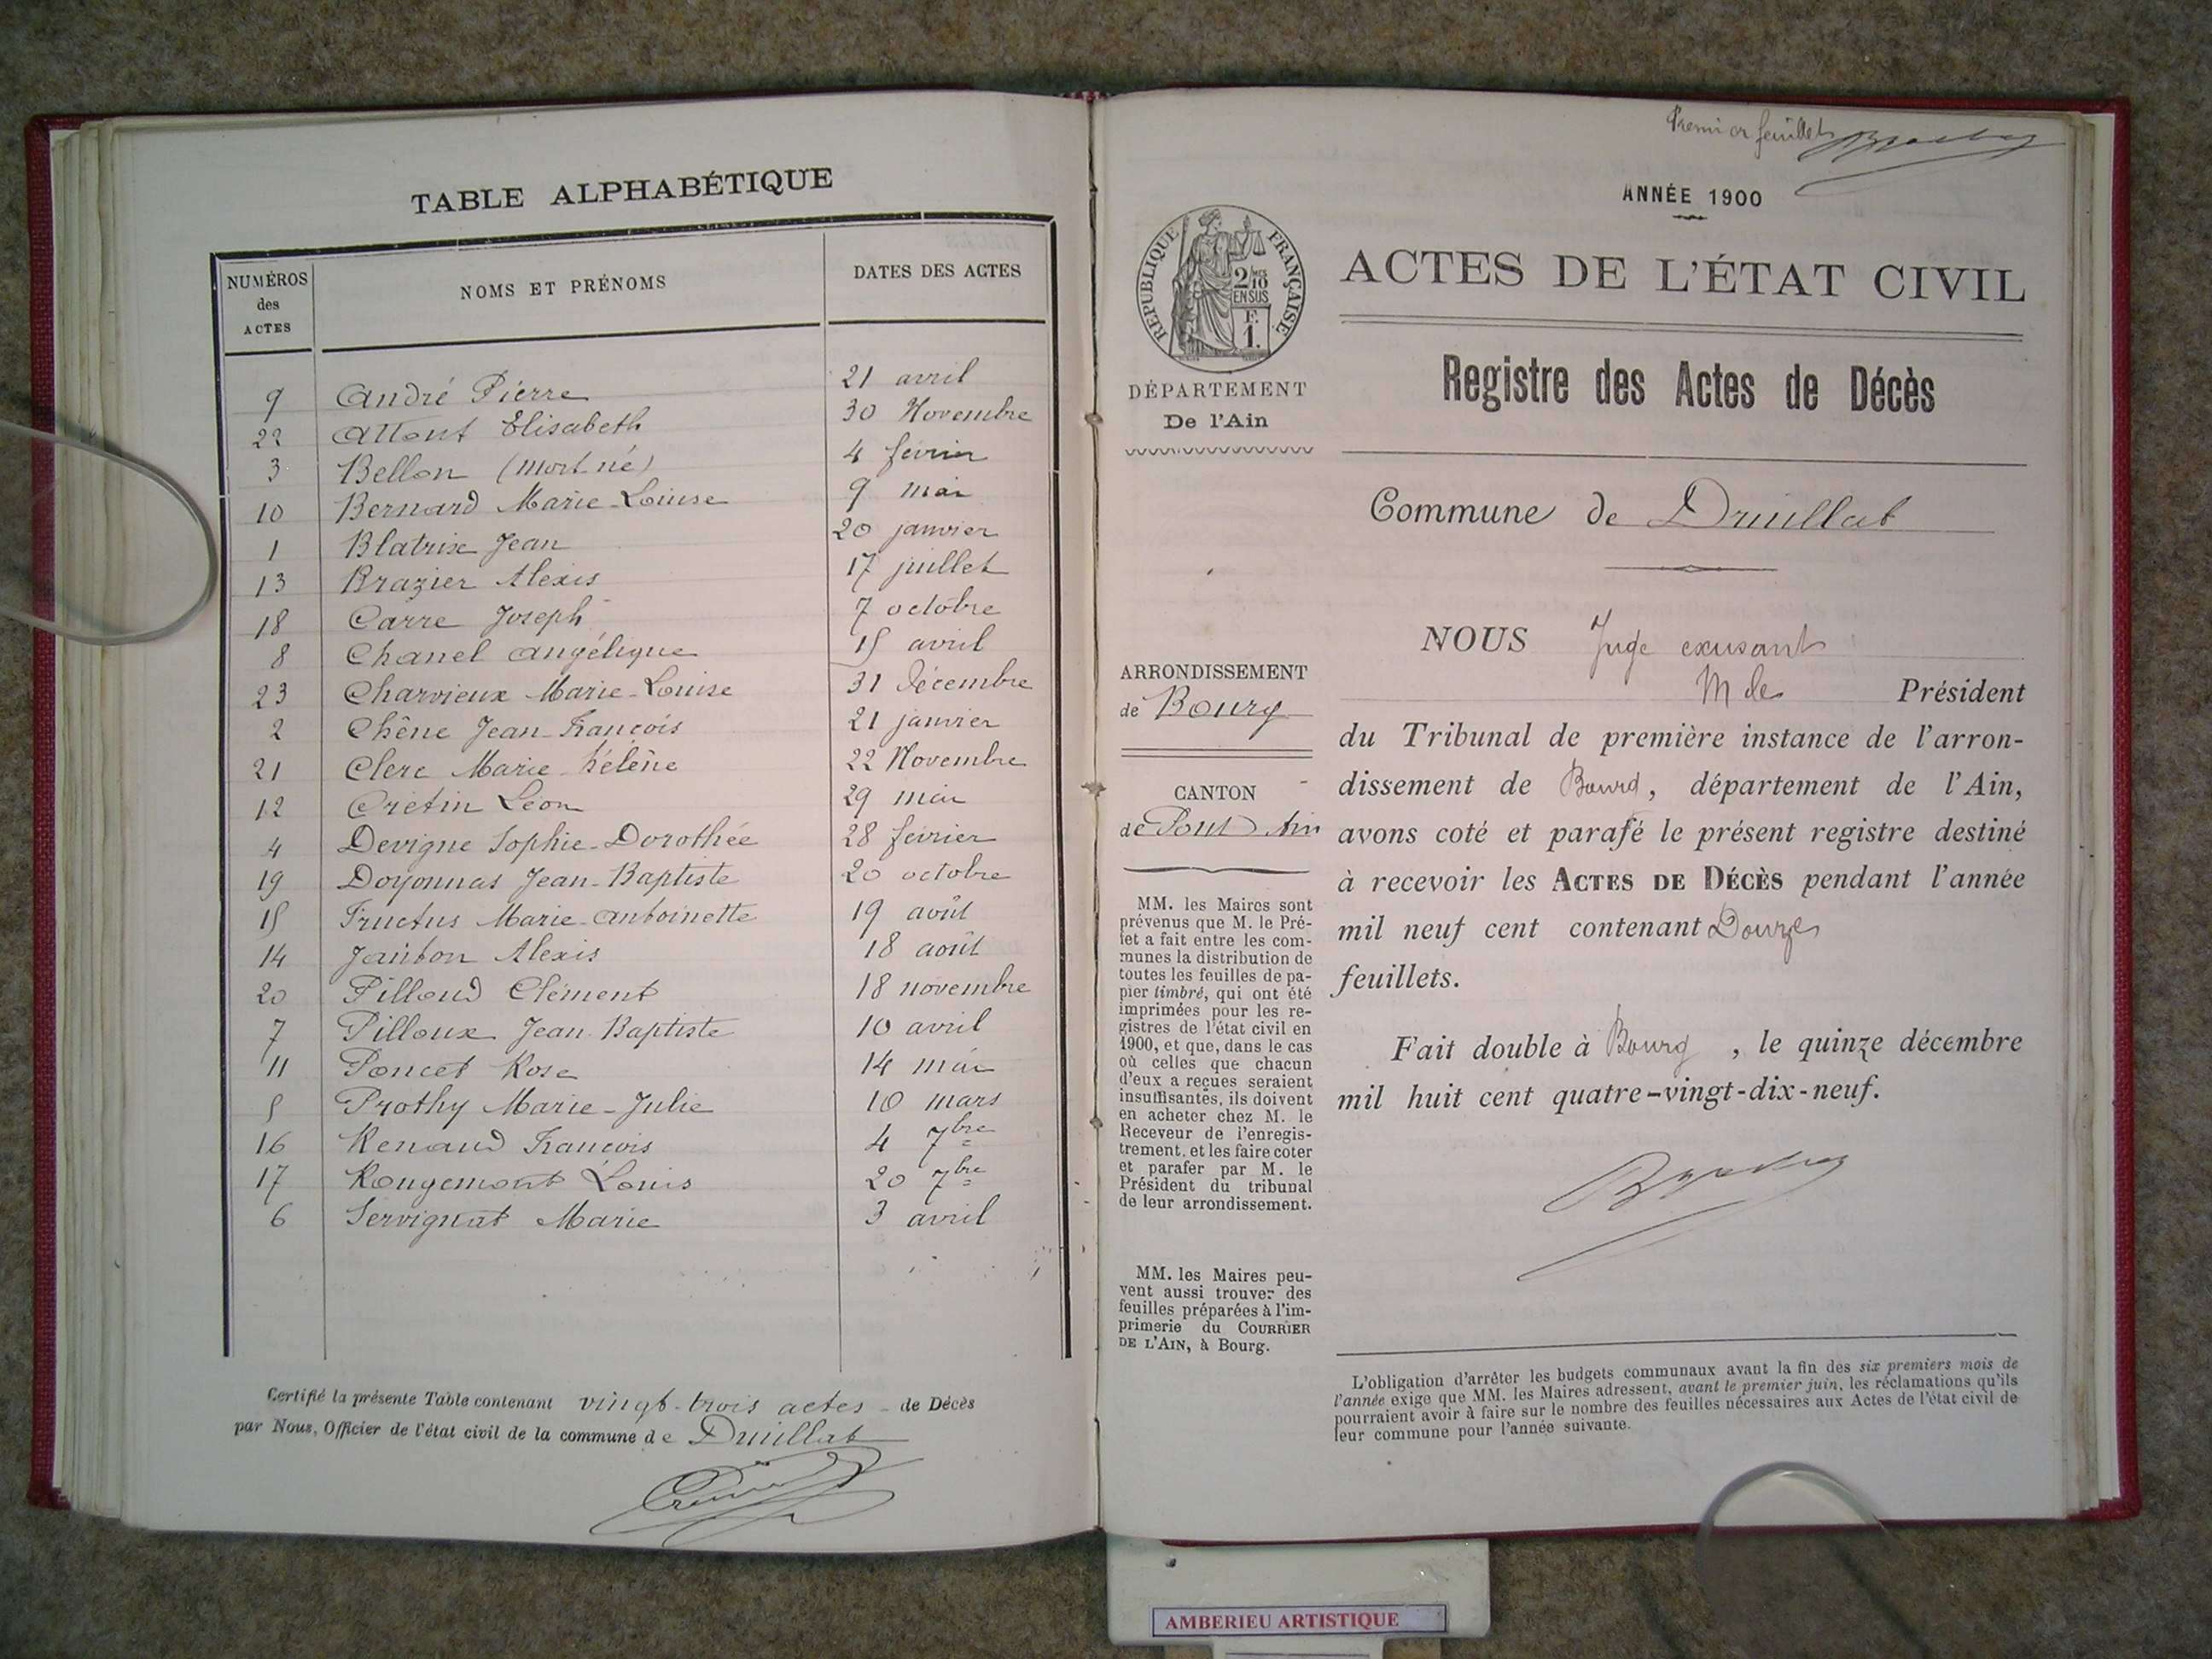 TABLE ALPHABÉTIQUE
NUMÉROS des ACTES NOMS ET PRÉNOMS DATES DES ACTES
9 André Pierre 21 avril
22 Allont Elisabeth 30 Novembre
3 Bellon (mort né) 4 février
10 Bernard Marie-Louise 9 mai
1 Blatrix Jean 20 janvier
13 Brazier Alexis 17 juillet
18 Carre Joseph 7 octobre
8 Chanel Angélique 15 avril
23 Charvieux Marie-Louise 31 Décembre
2 Chêne Jean-François 21 janvier
21 Clerc Marie-Hélène 22 Novembre
12 Crétin Léon 29 mai
4 Devigne Sophie-Dorothée 28 février
19 Doyonnas Jean-Baptiste 20 octobre
15 Fructus Marie-Antoinette 19 août
14 Janton Alexis 18 août
20 Pilloud Clément 18 novembre
7 Pilloux Jean-Baptiste 10 avril
11 Poncet Rose 14 mai
5 Prothy Marie-Julie 10 mars
16 Renaud François 4 7bre
17 Rougemont Louis 20 7bre
6 Servignat Marie 3 avril
Certifié la présente Table contenant vingt-trois actes - de Décès
par Nous, Officier de l'état civil de la commune de Druillat
Premier feuillet
ANNÉE 1900
RÉPUBLIQUE FRANÇAISE
2/10 MES
EN SUS
F.
1.
ACTES DE L'ÉTAT CIVIL
DÉPARTEMENT
De l'Ain
Registre des Actes de Décès
Commune de Druillat
ARRONDISSEMENT
de Bourg
CANTON
de Pont d'Ain
MM. les Maires sont
prévenus que M. le Pré-
fet a fait entre les com-
munes la distribution de
toutes les feuilles de pa-
pier timbré, qui ont été
imprimées pour les re-
gistres de l'état civil en
1900, et que, dans le cas
où celles que chacun
d'eux a reçues seraient
insuffisantes, ils doivent
en acheter chez M. le
Receveur de l'enregis-
trement, et les faire coter
et parafer par M. le
Président du tribunal
de leur arrondissement.
MM. les Maires peu-
vent aussi trouver des
feuilles préparées à l'im-
primerie du COURRIER
DE L'AIN, à Bourg.
NOUS Juge excusant
M le Président
du Tribunal de première instance de l'arron-
dissement de Bourg, département de l'Ain,
avons coté et parafé le présent registre destiné
à recevoir les ACTES DE DÉCÈS pendant l'année
mil neuf cent contenant Douze
feuillets.
Fait double à Bourg, le quinze décembre
mil huit cent quatre-vingt-dix-neuf.
L'obligation d'arrêter les budgets communaux avant la fin des six premiers mois de
l'année exige que MM. les Maires adressent, avant le premier juin, les réclamations qu'ils
pourraient avoir à faire sur le nombre des feuilles nécessaires aux Actes de l'état civil de
leur commune pour l'année suivante.
AMBERIEU ARTISTIQUE